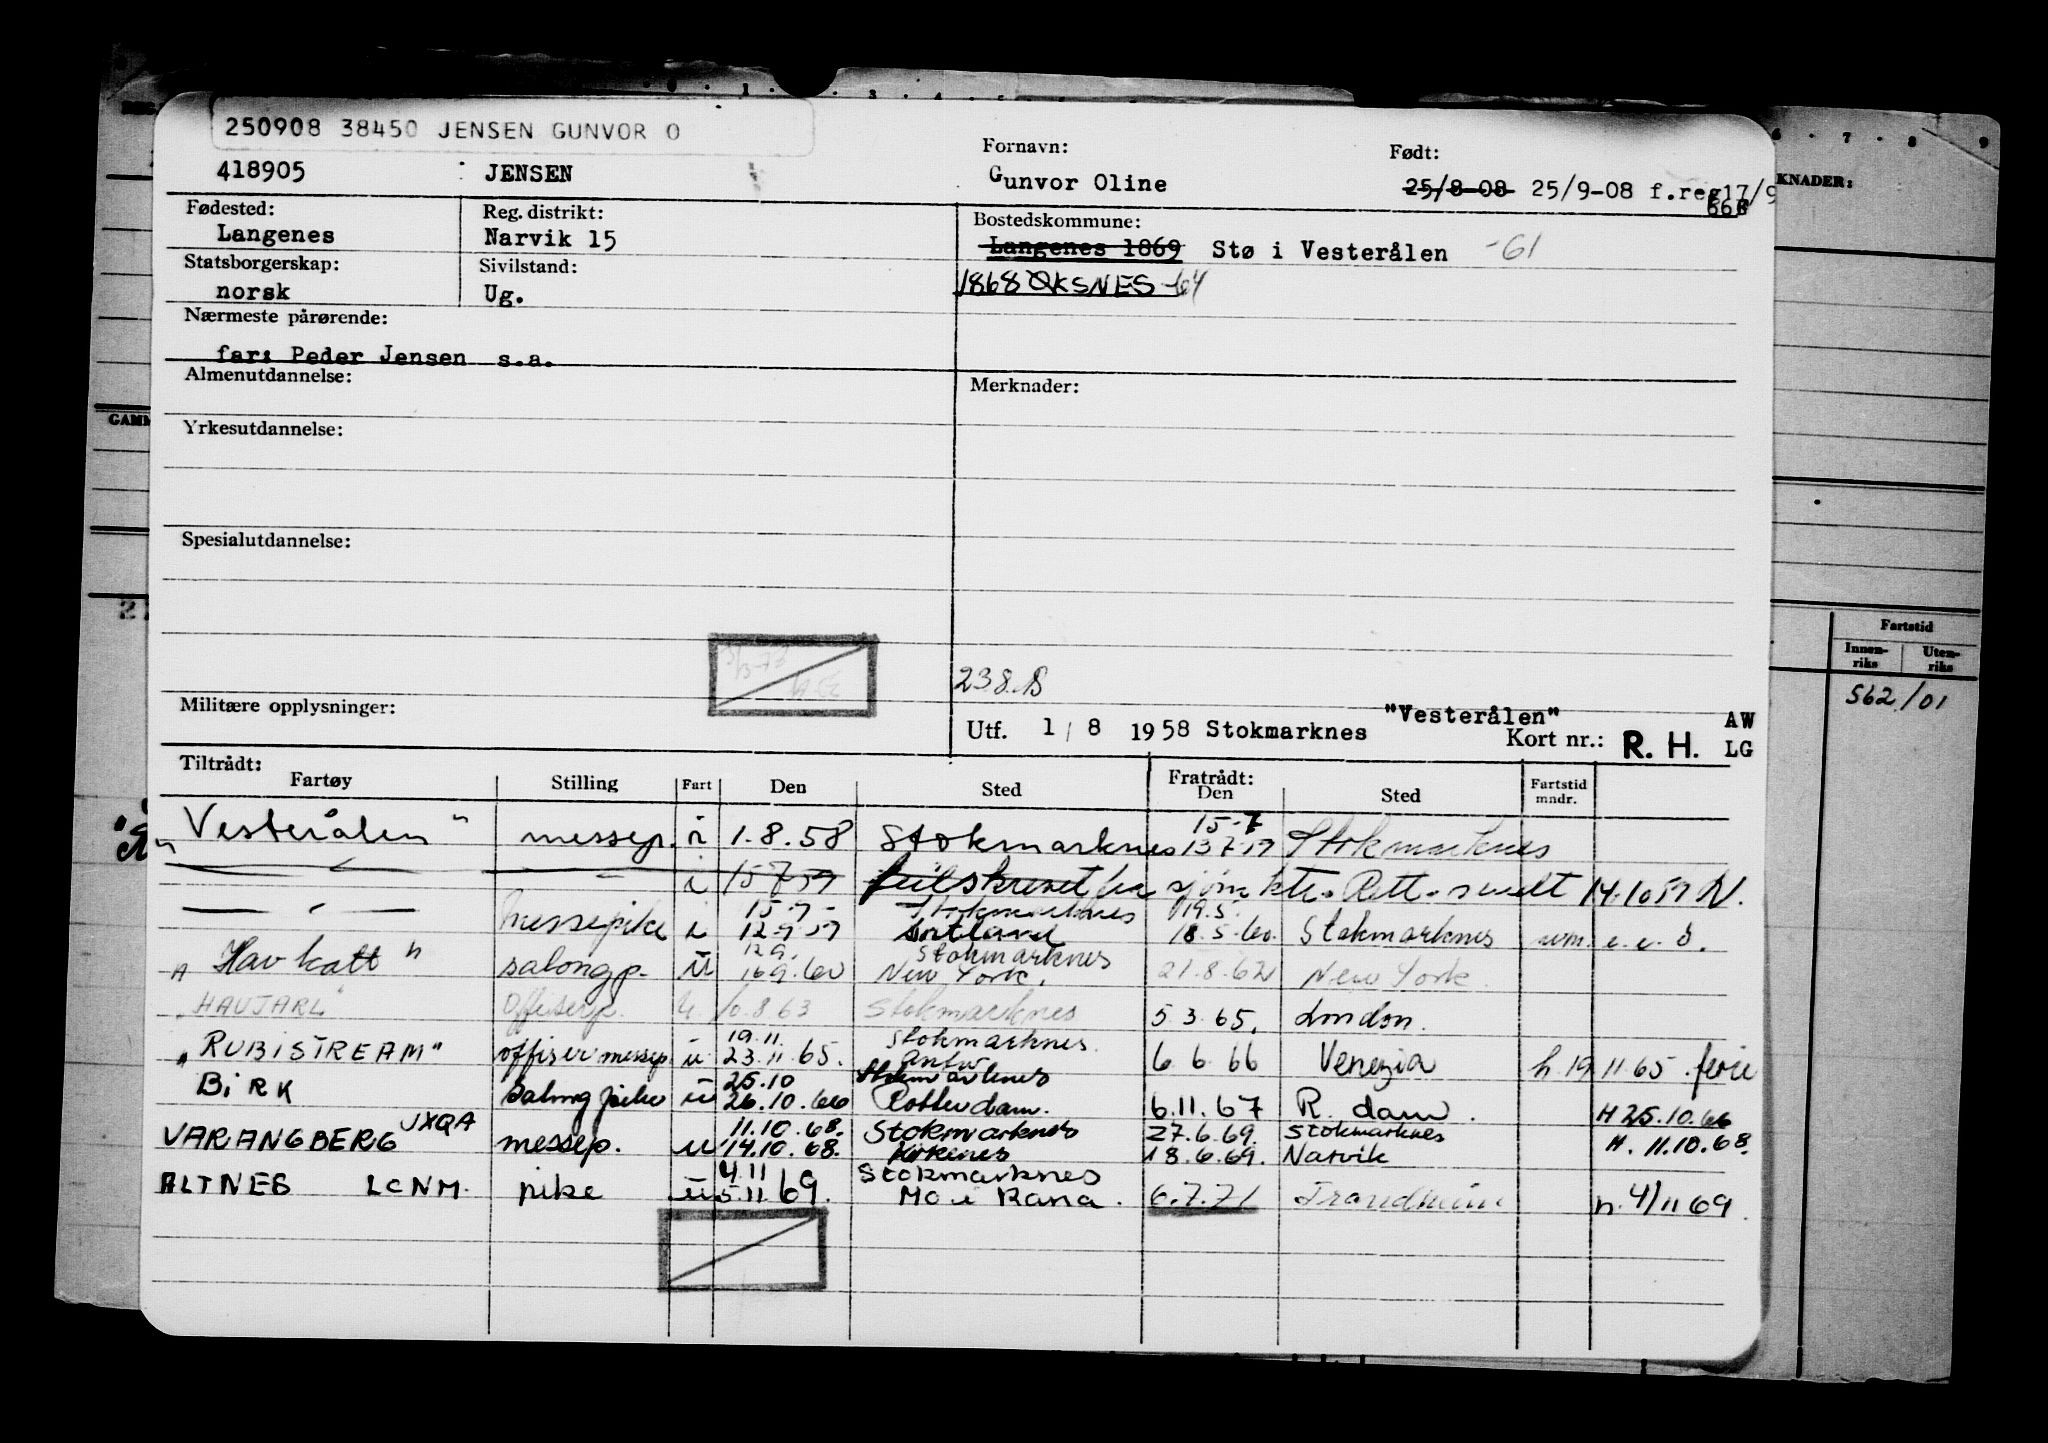 250908 38450 JENSEN GUNVOR O
418905 JENSEN
Fornavn:
Gunvor Oline
Født:
25/8-08 25/9-08 f.reg17/9
66
KNADER:
Fødested:
Langenes
Reg. distrikt:
Narvik 15
Bostedskommune:
Langenes 1869 Stø i Vesterålen -61
1868 ØKSNES -64
Statsborgerskap:
norsk
Sivilstand:
Ug.
Nærmeste pårørende:
far: Peder Jensen s.a.
Almenutdannelse:
Merknader:
Yrkesutdannelse:
Spesialutdannelse:
Fartstid
Innen-
riks
Uten-
riks
562/01
238.B
Militære opplysninger:
Utf. 1/8 1958 Stokmarknes "Vesterålen"
Kort nr.: R. H. AW
LG
Tiltrådt:
Fartøy Stilling Fart Den Sted
Fratrådt:
Den Sted
Fartstid
mndr.
15-7
"Vesterålen" messep. i 1.8.58 Stokmarknes 13.7.59 Stokmarknes
— " — i 15.7.59 feilskrevet fra sjøm.ktr. Rett. sendt 14.10.59 N.
15-7- Stokmarknes 19.5.
— " — Messepike i 12.9.59 Sortland 18.5.60. Stokmarknes
12.9. Stokmarknes
"Havkatt" salongp. u 16.9.60 New York. 21.8.62 New York.
"HAVJARL" Offiserp. u. 10.8.63 Stokmarknes 5.3.65. London.
19.11. Stokmarknes.
"RUBISTREAM" offisermessep. u. 23.11.65. Antw 6.6.66 Venezia h.19.11.65. ferie
25.10 Stokmarknes
BIRK Salongpike u 26.10.66 Rotterdam. 6.11.67 R.dam. H 25.10.66
11.10.68. Stokmarknes 27.6.69. Stokmarknes
VARANGBERG JXQA messep. u 14.10.68. Kirkenes 18.6.69. Narvik H. 11.10.68.
4.11 Stokmarknes
ALTNES LCNM. pike u 5.11.69. Mo i Rana. 6.7.71 Trondheim h. 4/11 69.